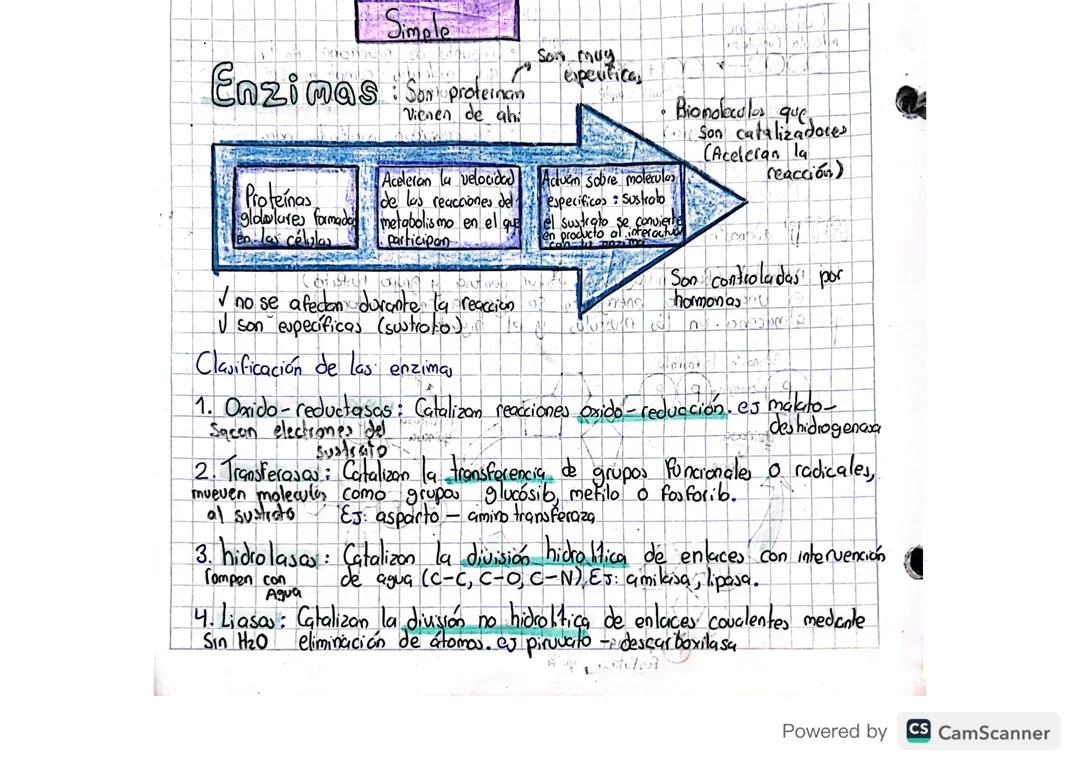 Simple
Son muy
especificas
Enzimas : Son proteinan
vienen de ahi
• Biomoleculas que
son catalizadores
(Aceleran la
reacción)
Proteínas
globulares formadas
en las células
Aceleran la velocidad
de las reacciones del
metabolismo en el que
participan
Actúan sobre moleculas
especificas : Sustrato
el sustrato se convierte
en producto al interactuar
con la enzima
Son controladas por
hormonas
✓ no se afectan durante la reaccion
✓ son especificas (sustrato)
Clasificación de las enzimas
1. Oxido-reductasas : Catalizan reacciones oxido-reducción. ej malato-
deshidrogenasa
Sacan electrones del
sustrato
2. Transferasas : Catalizan la transferencia de grupos funcionales o radicales,
mueven moleculas como grupos glucósib, metilo o fosforib.
al sustrato EJ: asparto - amino transferaza
3. hidrolasas : Catalizan la división hidrolítica de enlaces con intervención
rompen con de agua (C-C, C-O, C-N), EJ: amilasa, lipasa.
Agua
4. Liasas : Catalizan la división no hidrolítica de enlaces covalentes mediante
Sin H2O eliminación de átomos. ej piruvato - descarboxilasa
Powered by CS CamScanner